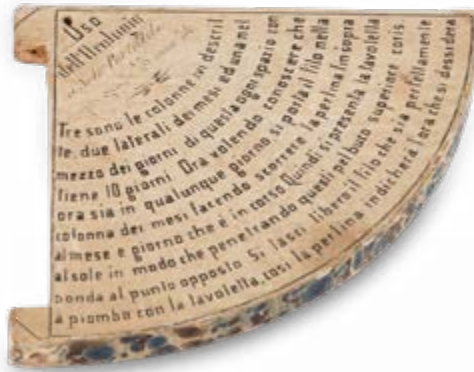 Uso
Tre sono le colonne in descrit
te, due laterali dei mesi ed una nel
mezzo dei giorni di questa ogni spazio con
tiene 10 giorni Ora volendo conoscere che
ora sia in qualunque giorno si porta il filo nella
colonna dei mesi facendo scorrere la perlina fin sopra
al mese e giorno che è in corso Quindi si presenta la tavolella
al sole in modo che penetrando questi pel buco superiore coris.
ponda al punto opposto. Si lasci libero il filo che sia perfettamente
a piombo con la tavolella, così la perlina indicherà l'ora che si dessidera